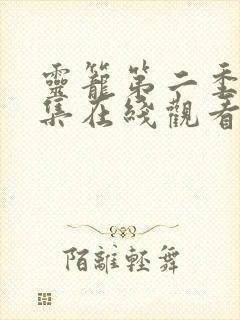 靈籠第二季
集在綫觀看
陌離輕舞